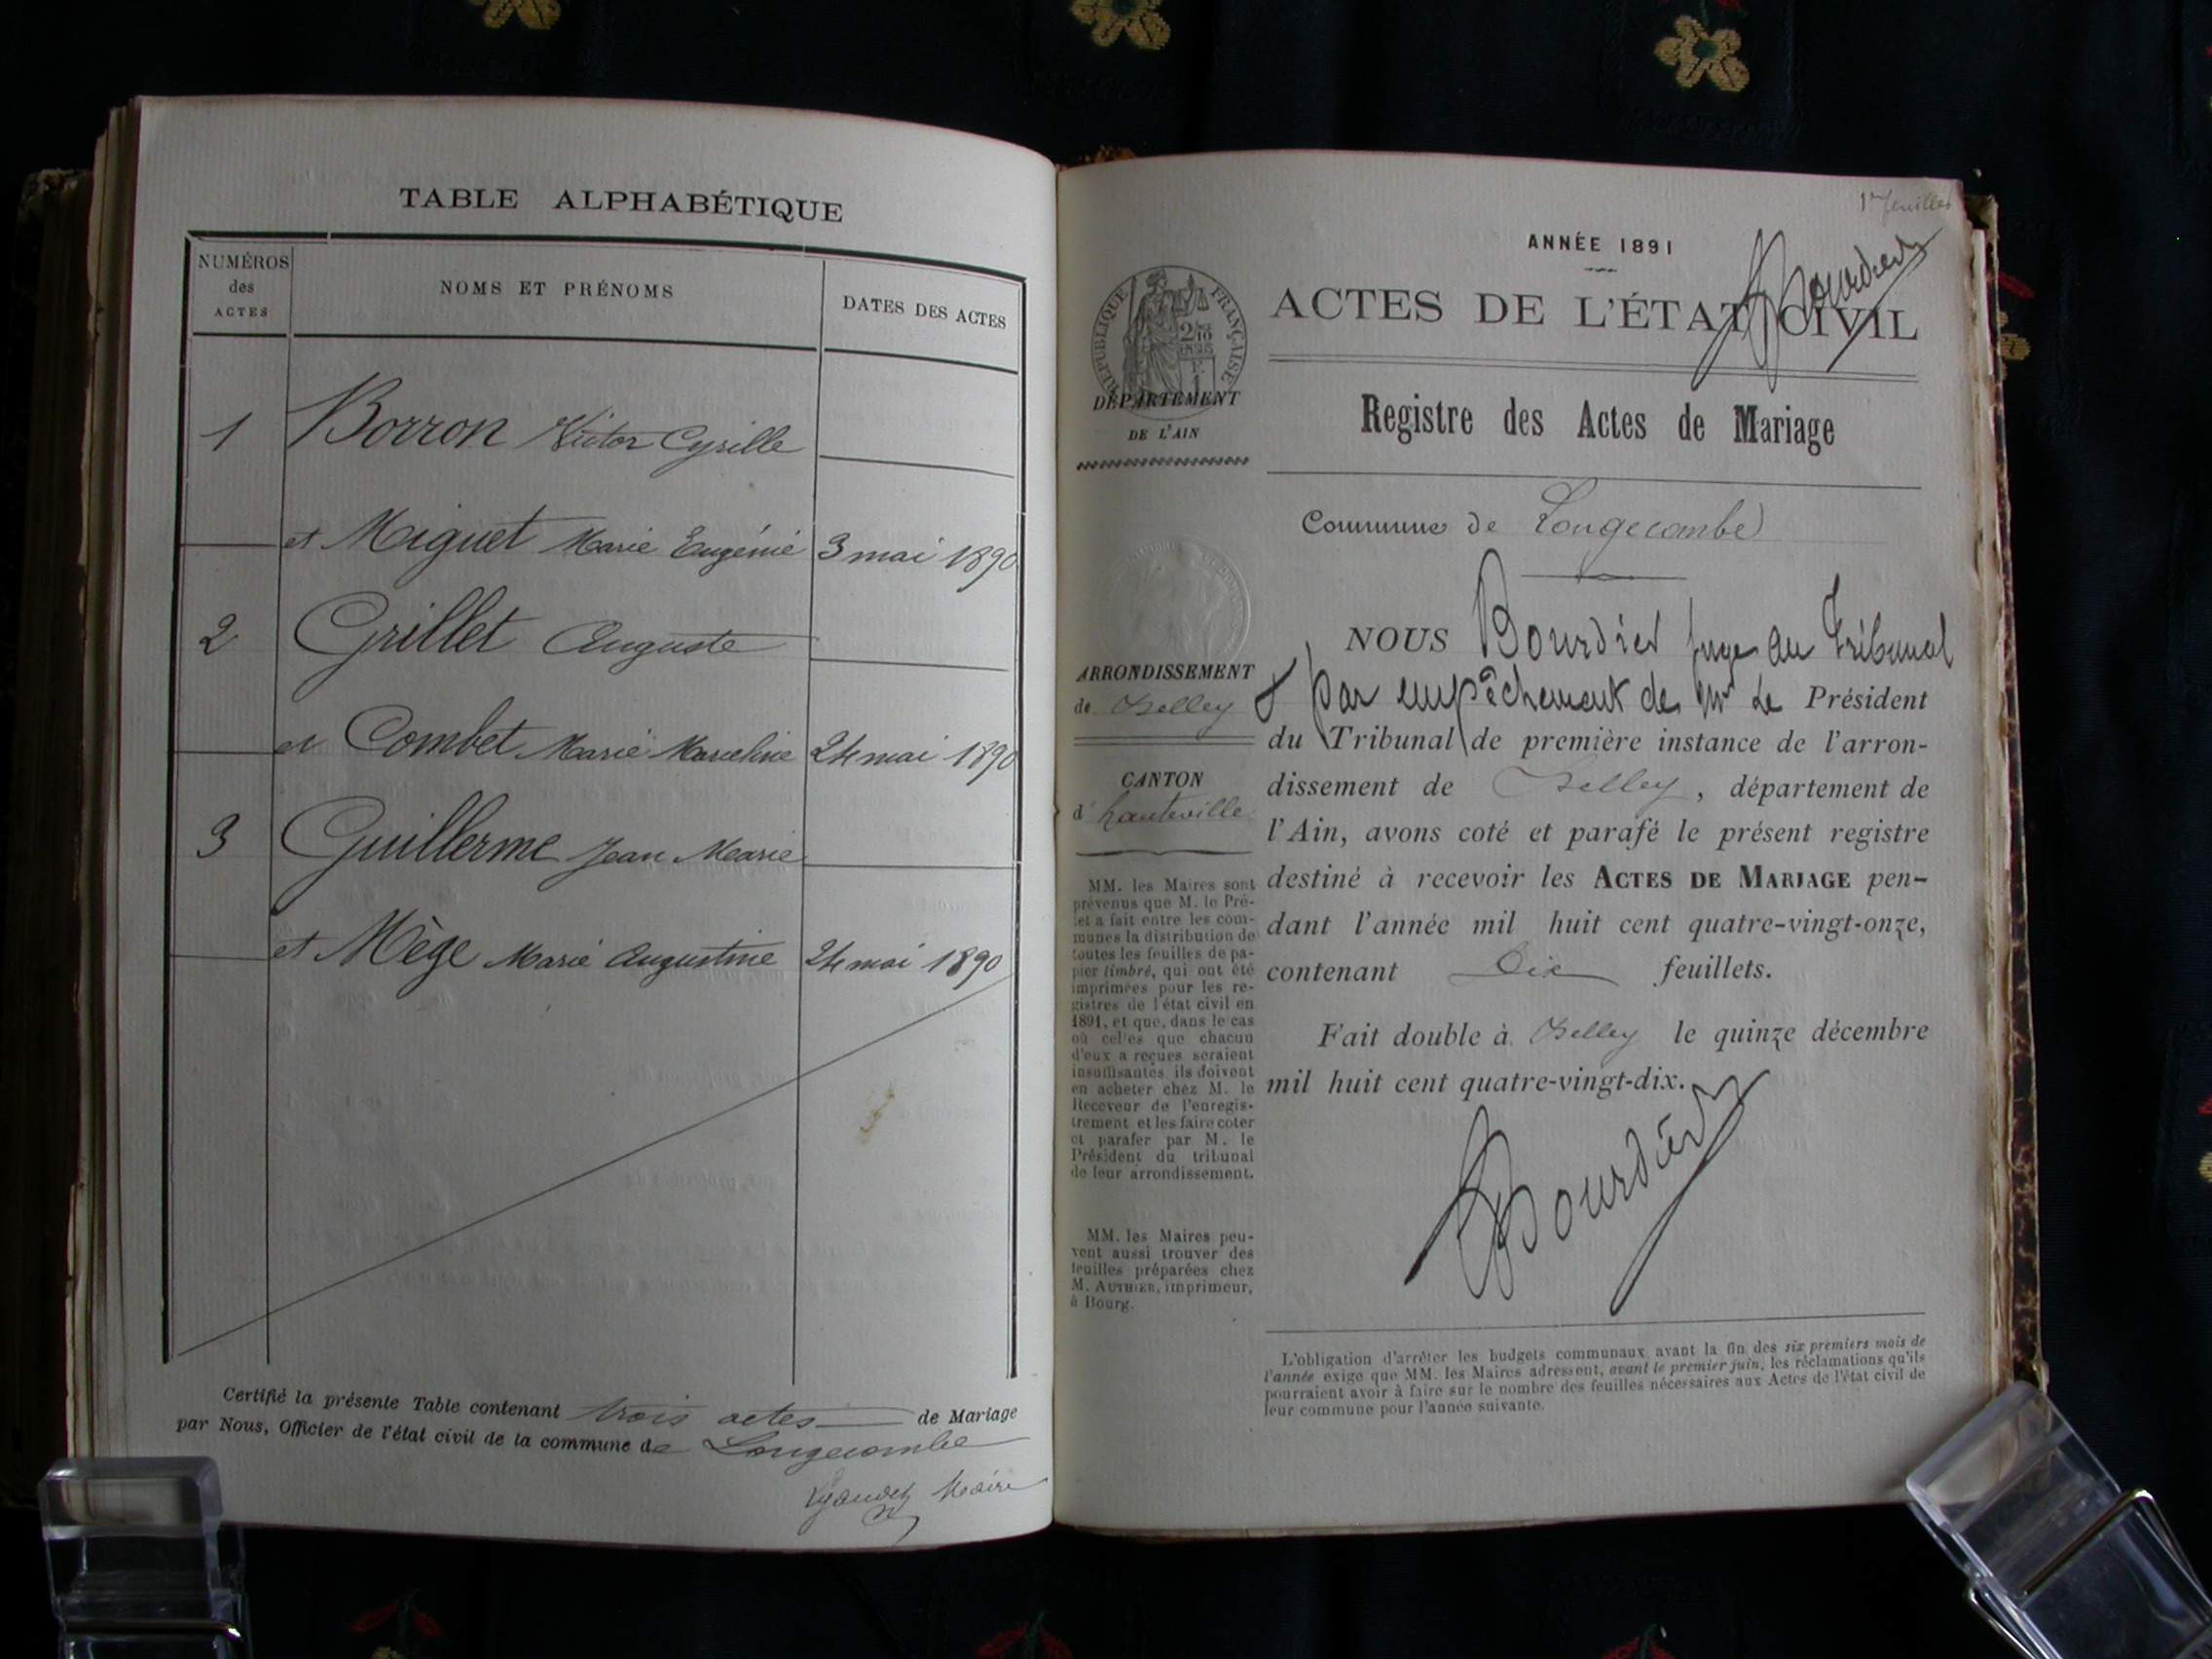 TABLE ALPHABÉTIQUE
NUMÉROS
des
ACTES
NOMS ET PRÉNOMS
DATES DES ACTES
1 Borron Victor Cyrille
et Miguet Marie Eugénie 3 mai 1890
2 Grillet Auguste
et Combet Marie Marceline 24 mai 1890
3 Guillerme Jean Marie
et Mège Marie Augustine 24 mai 1890
Certifié la présente Table contenant trois actes de Mariage
par Nous, Officier de l'état civil de la commune de Longecombe
Maire
1er feuillet
ANNÉE 1891
Bourdier
ACTES DE L'ÉTAT CIVIL
RÉPUBLIQUE FRANÇAISE
DÉPARTEMENT
DE L'AIN
Registre des Actes de Mariage
Commune de Longecombe
NOUS Bourdier juge au Tribunal
par empêchement de Mr Le Président
du Tribunal de première instance de l'arron-
dissement de Belley, département de
l'Ain, avons coté et parafé le présent registre
destiné à recevoir les ACTES DE MARIAGE pen-
dant l'année mil huit cent quatre-vingt-onze,
contenant Dix feuillets.
Fait double à Belley le quinze décembre
mil huit cent quatre-vingt-dix.
Bourdier
ARRONDISSEMENT
de Belley
CANTON
d'hauteville
MM. les Maires sont
prévenus que M. le Pré-
fet a fait entre les com-
munes la distribution de
toutes les feuilles de pa-
pier timbré, qui ont été
imprimées pour les re-
gistres de l'état civil en
1891, et que, dans le cas
où celles que chacun
d'eux a reçues seraient
insuffisantes, ils doivent
en acheter chez M. le
Receveur de l'enregis-
trement et les faire coter
et parafer par M. le
Président du tribunal
de leur arrondissement.
MM. les Maires peu-
vent aussi trouver des
feuilles préparées chez
M. AUTHIER, imprimeur,
à Bourg.
L'obligation d'arrêter les budgets communaux avant la fin des six premiers mois de
l'année exige que MM. les Maires adressent, avant le premier juin, les réclamations qu'ils
pourraient avoir à faire sur le nombre des feuilles nécessaires aux Actes de l'état civil de
leur commune pour l'année suivante.